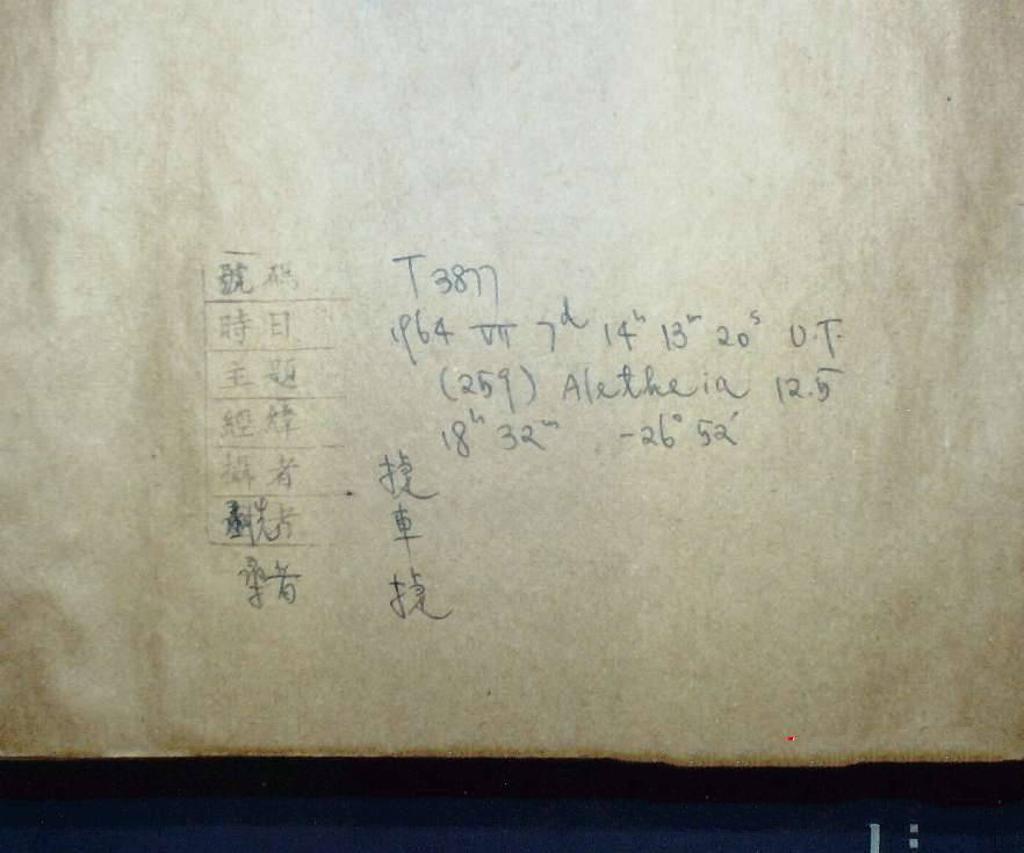 號碼 T 3877
時日 1964 VII 7ᵈ 14ʰ 13ᵐ 20ˢ U.T.
主題 (259) Aletheia 12.5
經緯 18ʰ 32ᵐ -26° 52′
攝者
洗片 車
者